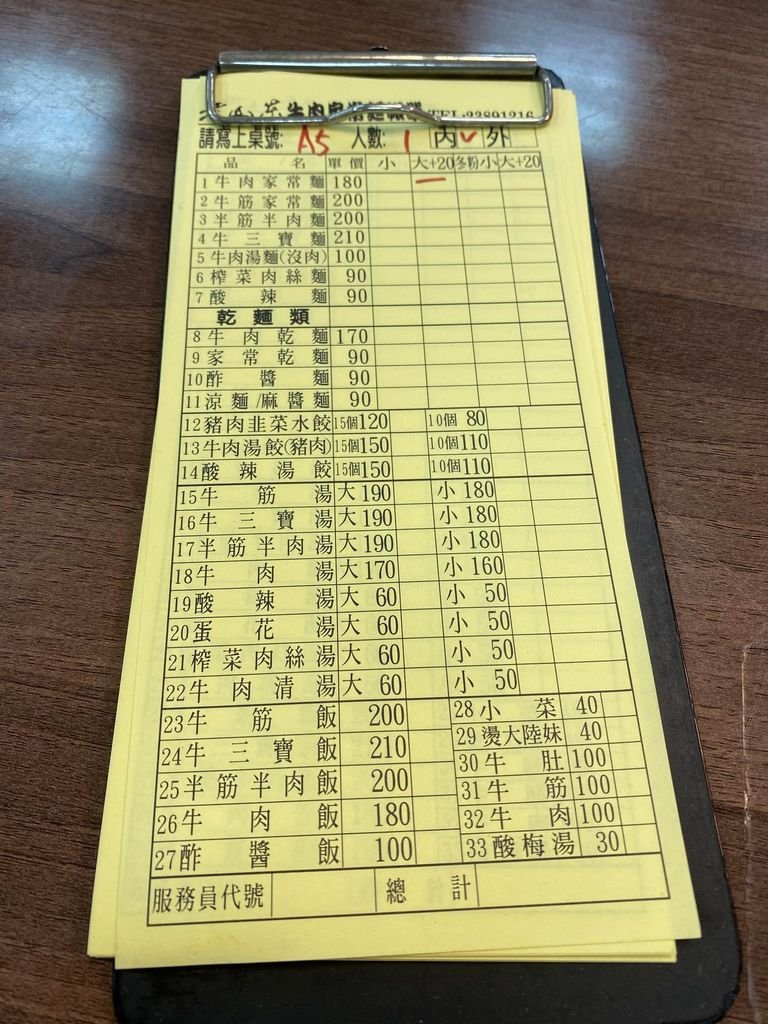 牛肉家常麵 TEL:23891216
請寫上桌號: A5 人數: 1 內 ✓ 外
品名 單價 小 大+20 冬粉小 大+20
1 牛肉家常麵 180 一
2 牛筋家常麵 200
3 半筋半肉麵 200
4 牛三寶麵 210
5 牛肉湯麵(沒肉) 100
6 榨菜肉絲麵 90
7 酸辣麵 90
乾麵類
8 牛肉乾麵 170
9 家常乾麵 90
10 酢醬麵 90
11 涼麵/麻醬麵 90
12 豬肉韭菜水餃 15個 120 10個 80
13 牛肉湯餃(豬肉) 15個 150 10個 110
14 酸辣湯餃 15個 150 10個 110
15 牛筋湯 大 190 小 180
16 牛三寶湯 大 190 小 180
17 半筋半肉湯 大 190 小 180
18 牛肉湯 大 170 小 160
19 酸辣湯 大 60 小 50
20 蛋花湯 大 60 小 50
21 榨菜肉絲湯 大 60 小 50
22 牛肉清湯 大 60 小 50
23 牛筋飯 200
24 牛三寶飯 210
25 半筋半肉飯 200
26 牛肉飯 180
27 酢醬飯 100
28 小菜 40
29 燙大陸妹 40
30 牛肚 100
31 牛筋 100
32 牛肉 100
33 酸梅湯 30
服務員代號 總計